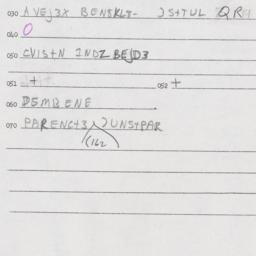 030 AVEJ3X BENSKLT- )S+TUL QR9
040 O
050 CVIS+N INDZ BEJD3
051 + 052 +
060 DSMBENE
070 PARENC+3 )UNS+PAR
(162